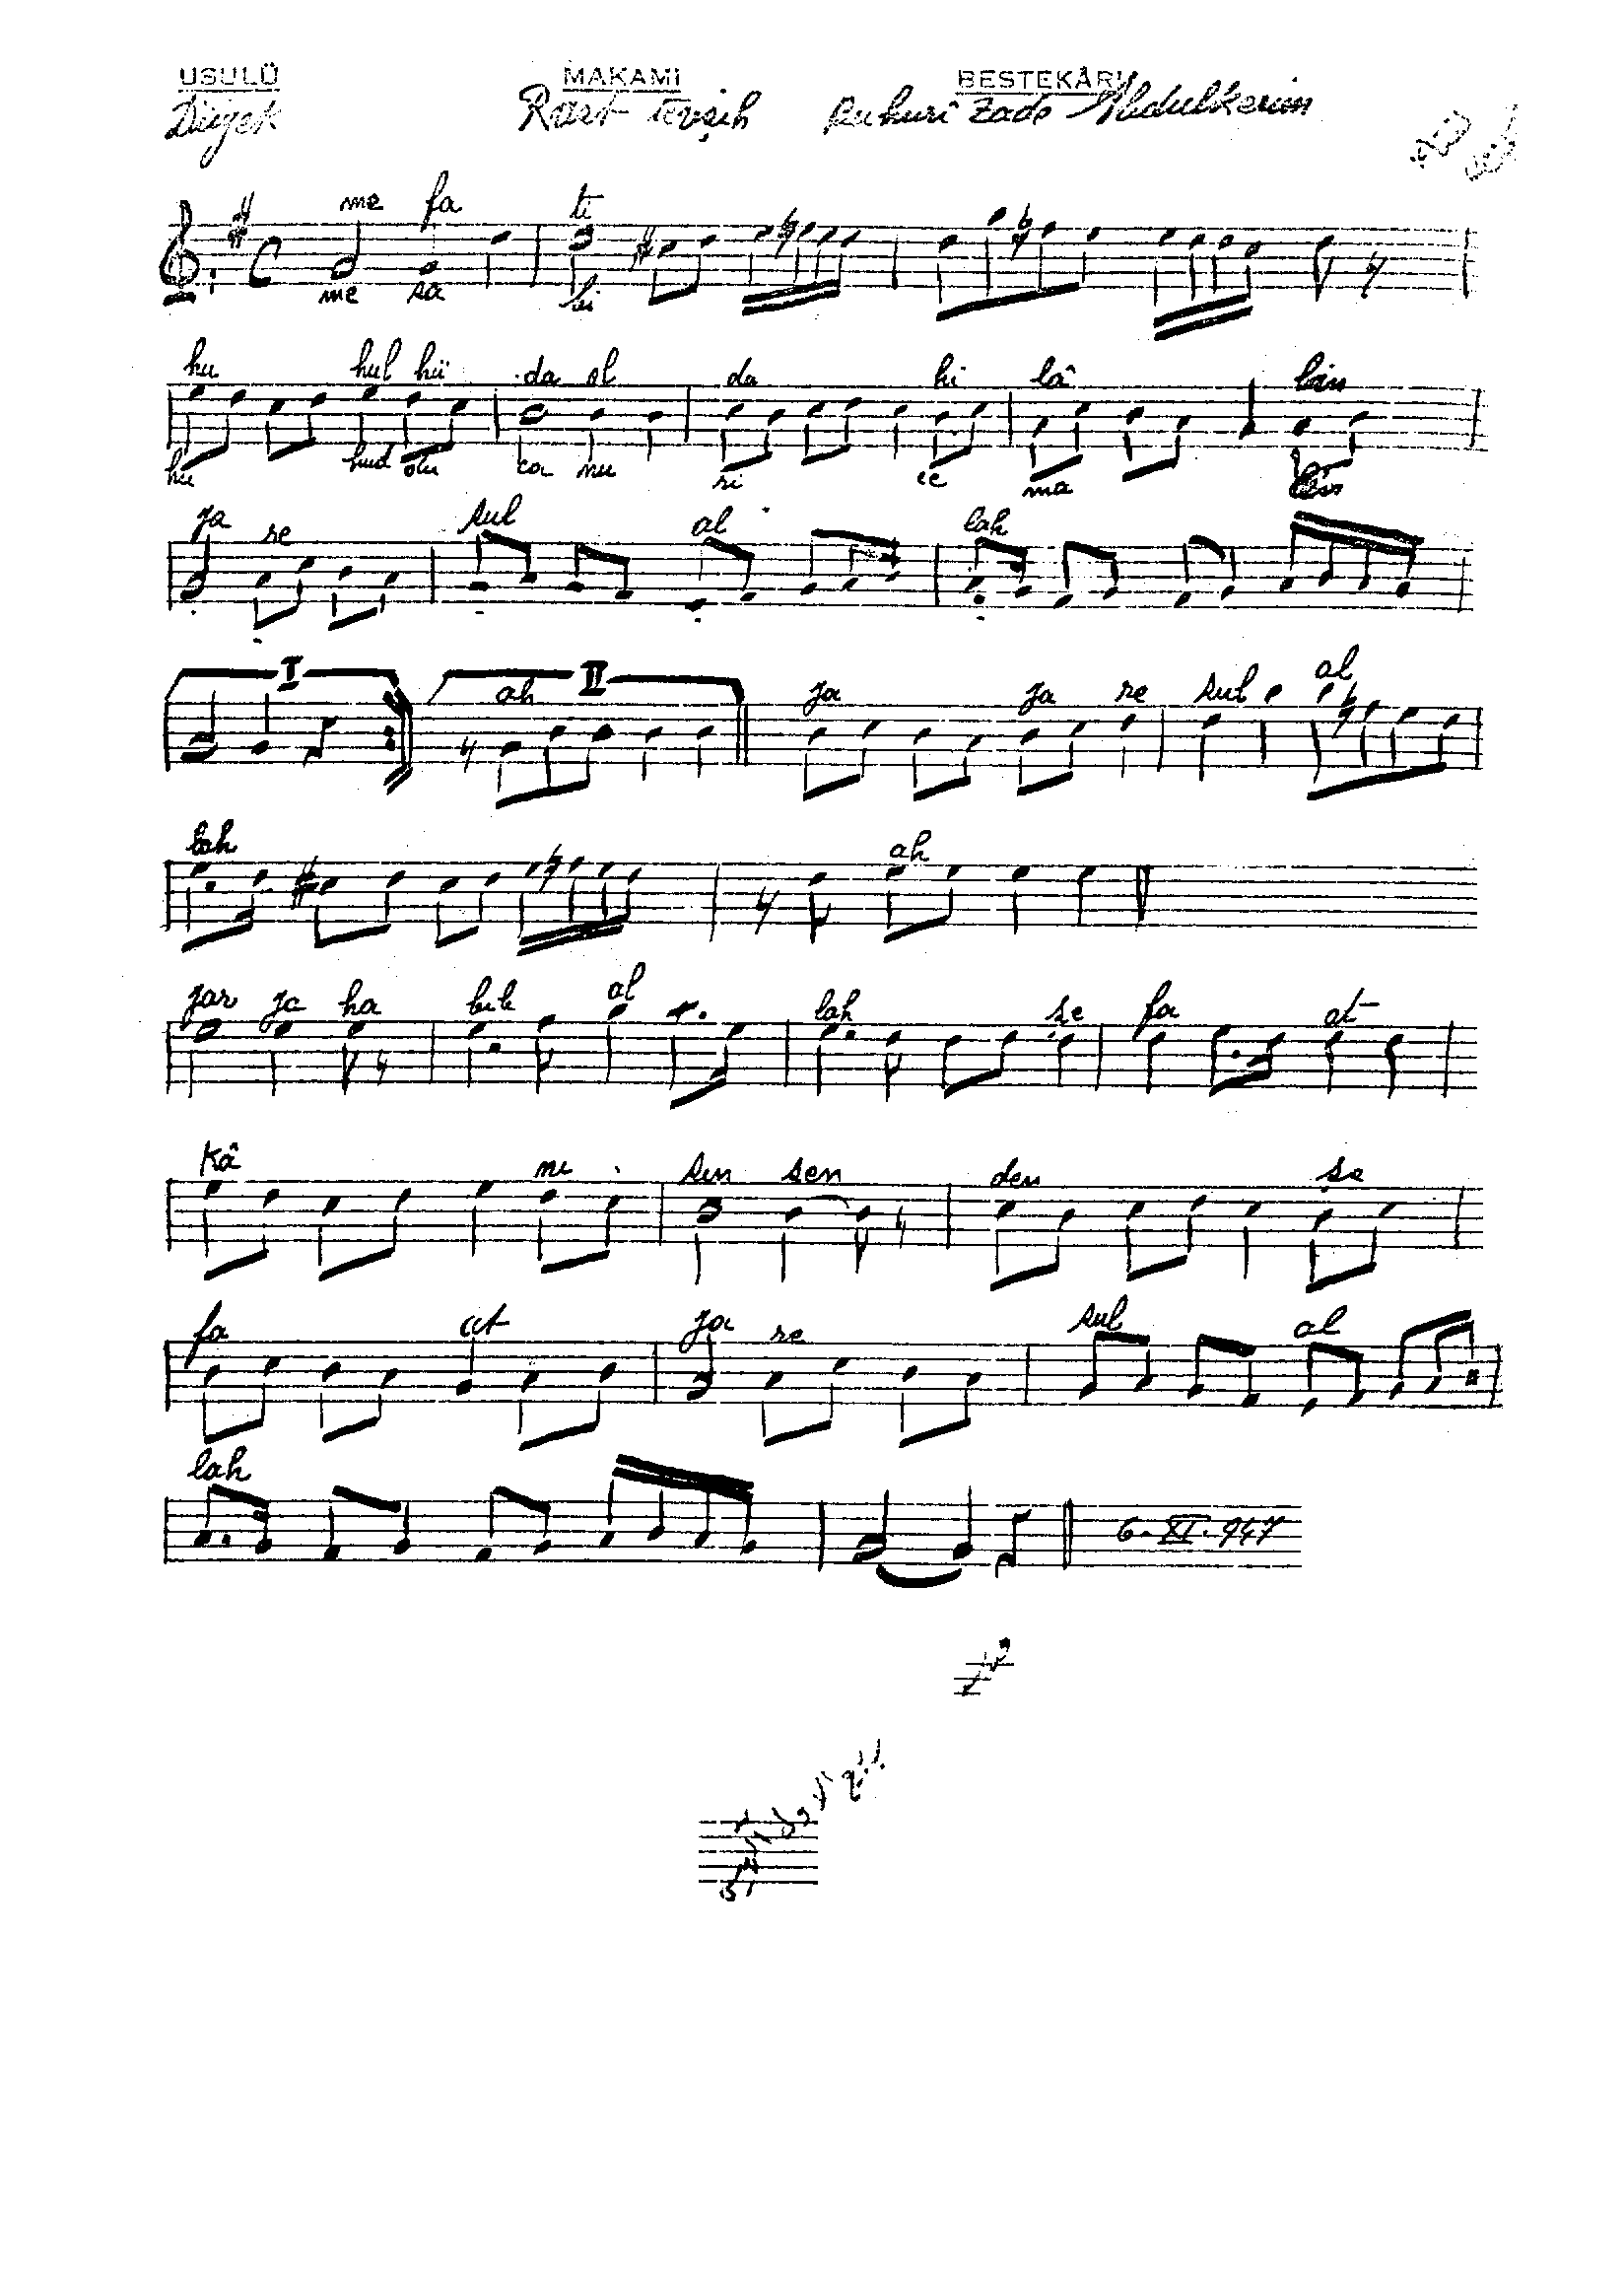 USULÜ MAKAMI BESTEKÂRI
Düyek Rast tevşih Buhurî zade Abdulkerim
me fa ti
me sa bi
hu hul hü da ol da hi lâ lân
hu hud olu ca nu ri ce ma
ja re sul al lah
I II
ah ja ja re sul al
lah ah
jar ja ha bib al lah şe fa at
kâ ni sın sen den şe
fa at ja re sul al
lah
6-XI-947